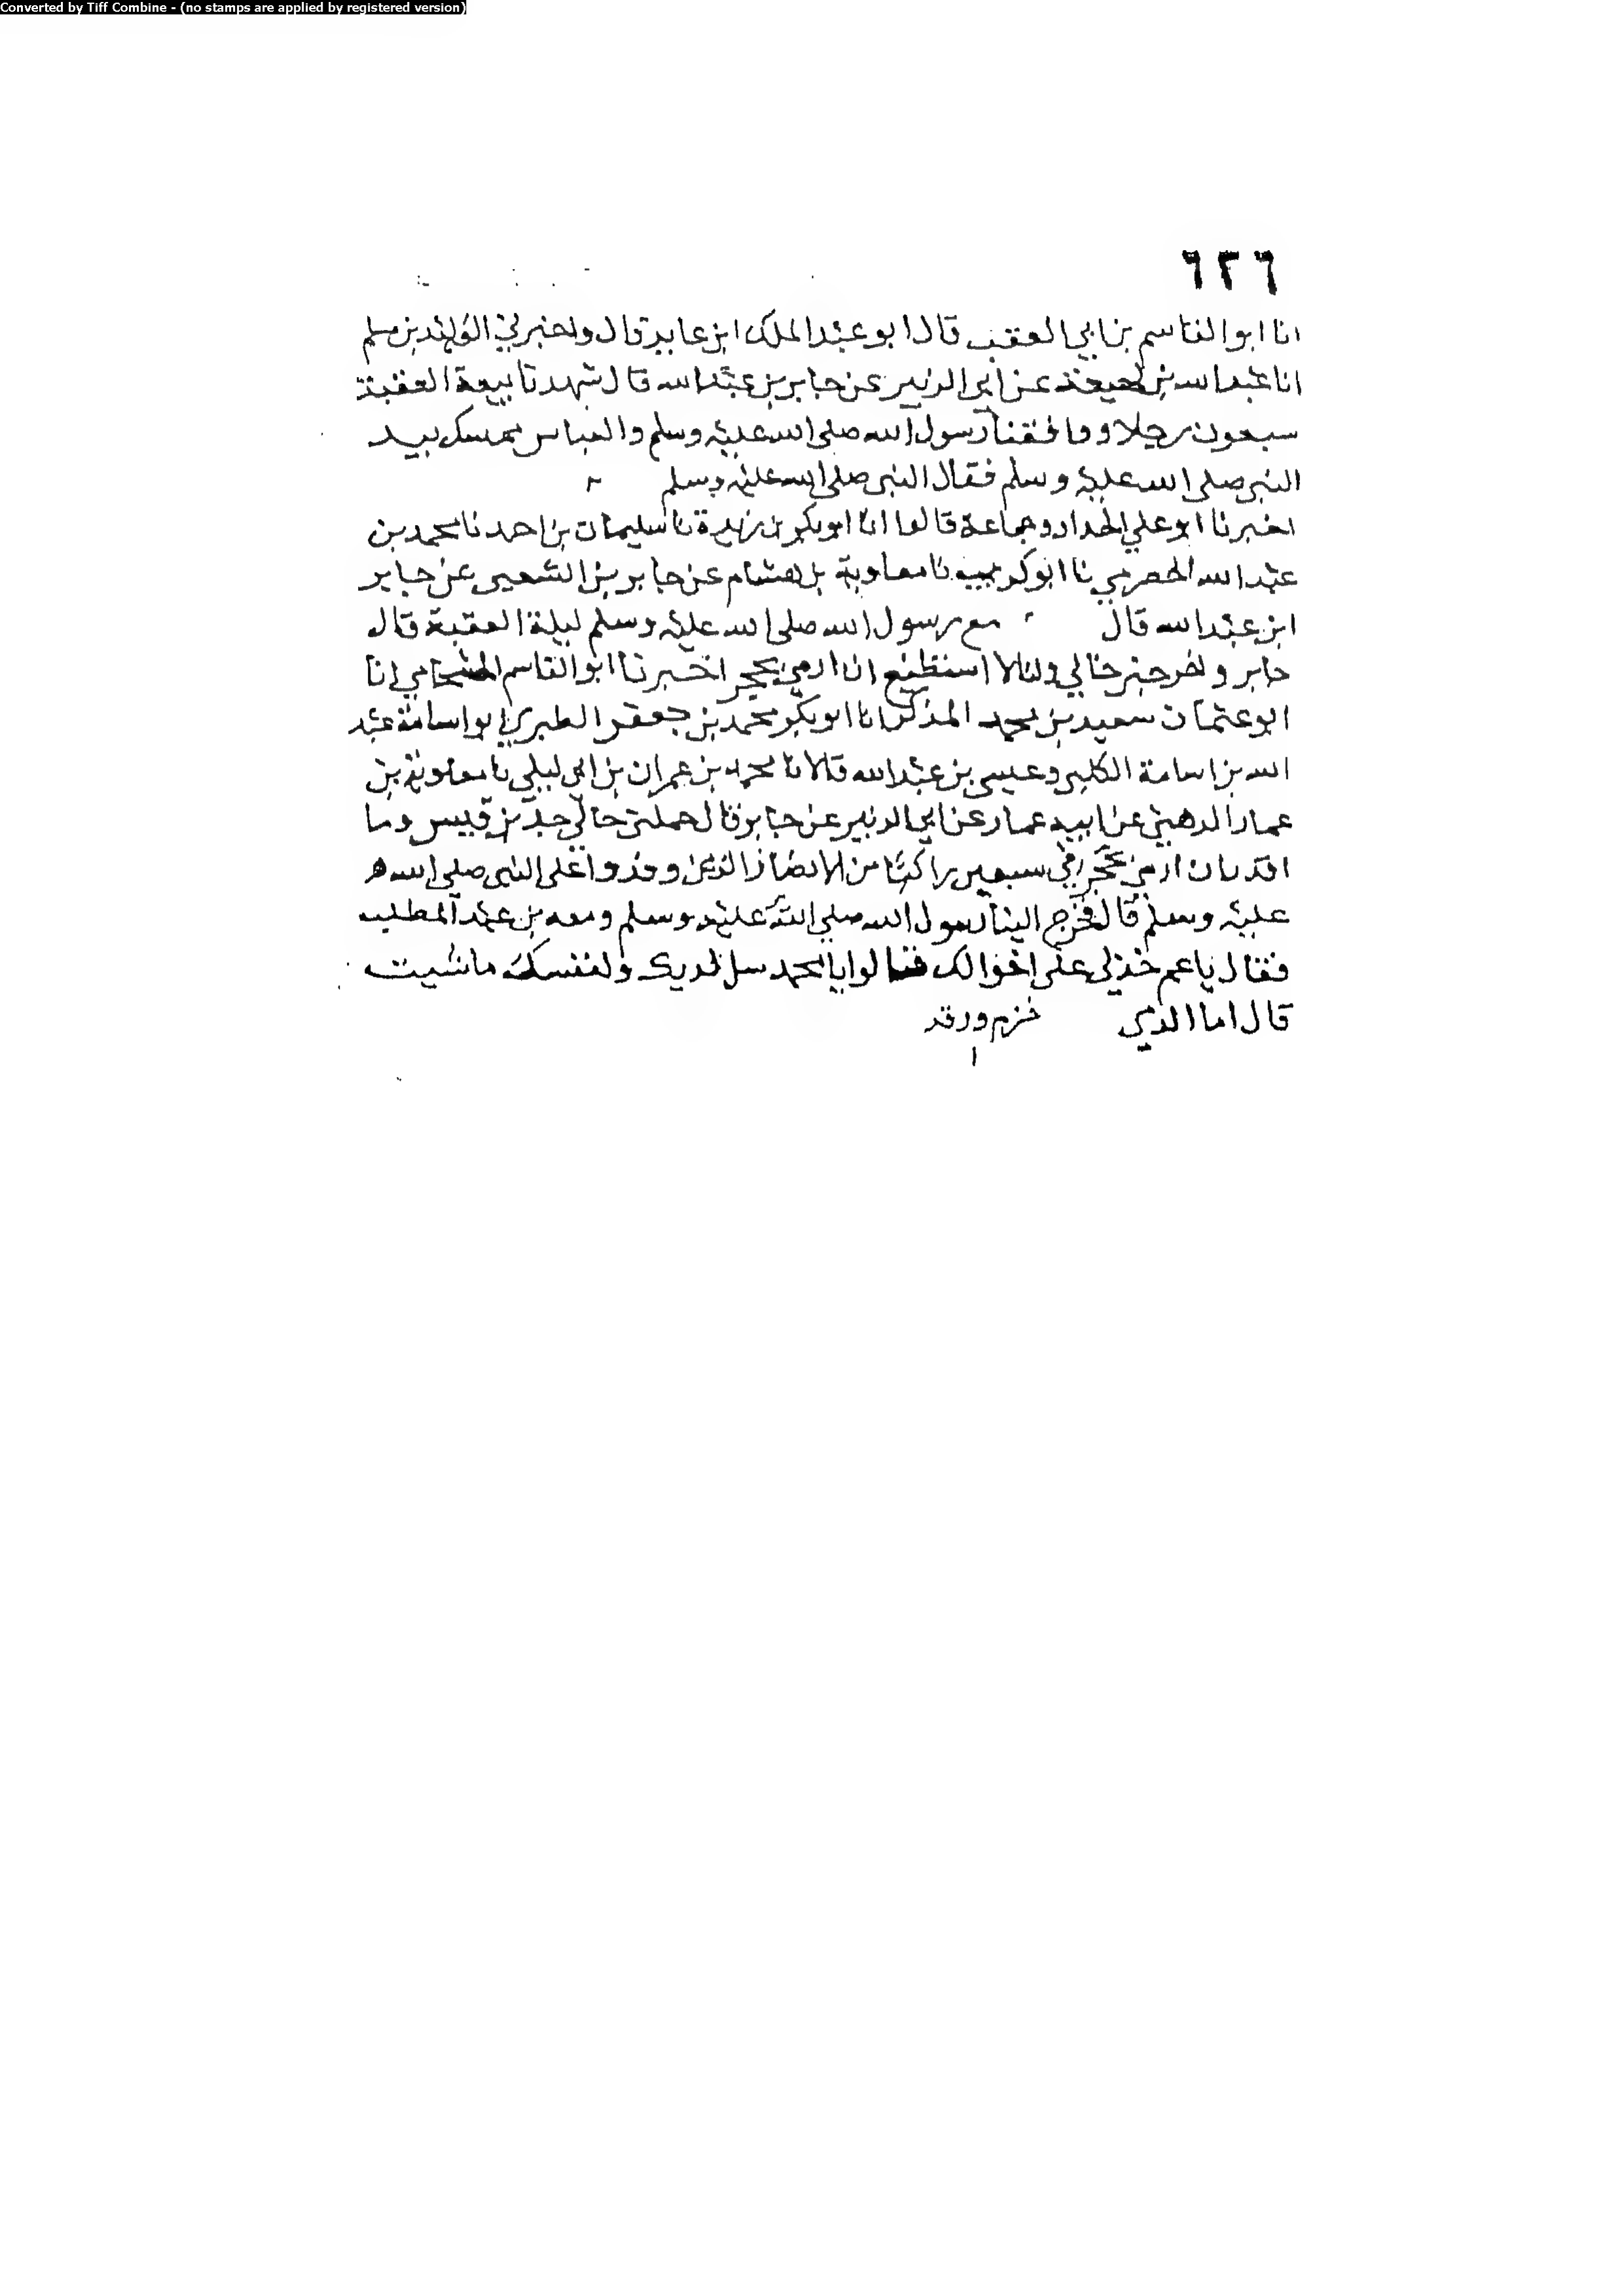 Converted by Tiff Combine - (no stamps are applied by registered version)
٦٢٦
انا ابو القاسم بن ابي العقب قال ابو عبد الملك ابن عايد قال واخبرني الوليد بن مسلم
انا عبد الله بن لهيعة عن ابي الزبير عن جابر بن عبد الله قال شهدنا بيعة العقبة
سبعون رجلا ووافقنا رسول الله صلى الله عليه وسلم والعباس يمسك بيد
النبي صلى الله عليه وسلم فقال النبي صلى الله عليه وسلم
اخبرنا ابو علي الحداد وجماعة قالوا انا ابو بكر بن ريذة نا سليمان بن احمد نا محمد بن
عبد الله الحضرمي نا ابو كريب نا معاوية بن هشام عن جابر بن الشعبي عن جابر
ابن عبد الله قال مع رسول الله صلى الله عليه وسلم ليلة العقبة قال
جابر واخرجني خالي وانا لا استطيع ان ارمي بحجر اخبرنا ابو القاسم الشحامي انا
ابو عثمان سعيد بن محمد المذكر انا ابو بكر محمد بن جعفر الطبري ابو اسامة عبد
الله بن اسامة الكلبي وعيسى بن عبد الله قالا نا محمد بن عمران بن ابي ليلى نا معاوية بن
عمار الدهني عن ابيه عمار عن ابي الزبير عن جابر قال حملني خالي جد بن قيس وما
اقد بان ارمي بحجر في سبعين راكبا من الانصار الذين وفدوا على النبي صلى الله
عليه وسلم قال فخرج الينا رسول الله صلى الله عليه وسلم ومعه بن عبد المطلب
فقال يا عم خذ لي على اخوالك فقالوا يا محمد سل لربك ولنفسك ما شيت
قال اما الذي